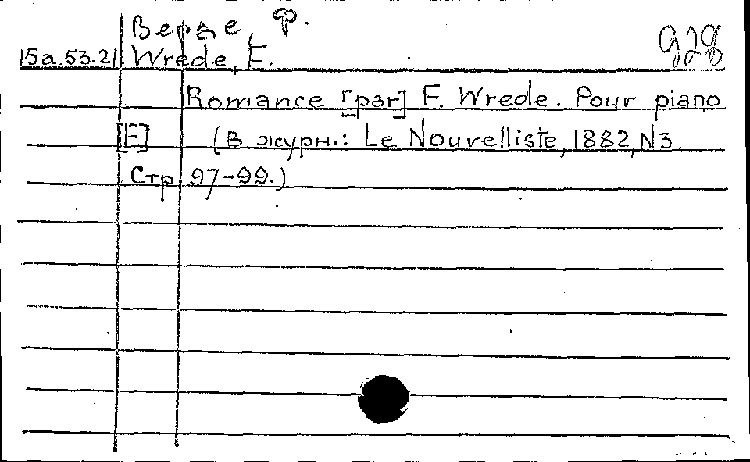 Верде, Ф.
928
15а.53.21 Wrede, F.
Romance [par] F. Wrede. Pour piano
[F] (В журн.: Le Nouvelliste, 1882, N3
Стр. 97-99.)